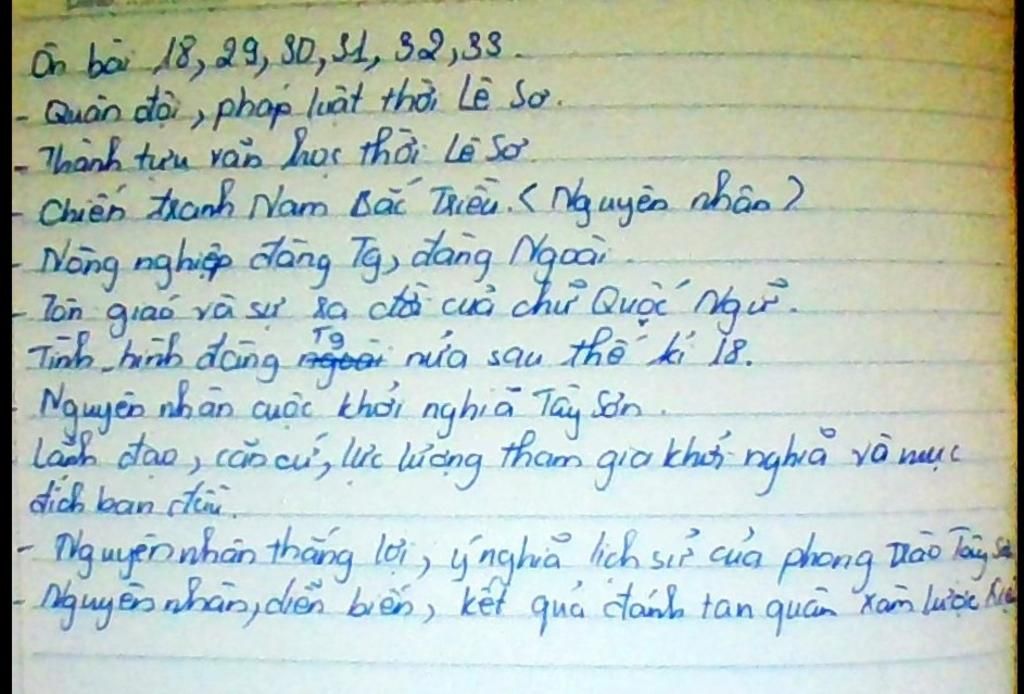 Ôn bài 18, 29, 30, 31, 32, 33.
- Quân đội, pháp luật thời Lê Sơ.
- Thành tựu văn học thời Lê Sơ
- Chiến tranh Nam Bắc Triều. (Nguyên nhân)
- Nông nghiệp đàng Tg, đàng Ngoài.
- Tôn giáo và sự ra đời của chữ Quốc Ngữ.
Tình hình đàng Tg nửa sau thế kỉ 18.
- Nguyên nhân cuộc khởi nghĩa Tây Sơn.
Lãnh đạo, căn cứ, lực lượng tham gia khởi nghĩa và mục
đích ban đầu.
- Nguyên nhân thắng lợi, ý nghĩa lịch sử của phong trào Tây Sơ
- Nguyên nhân, diễn biến, kết quả đánh tan quân xâm lược